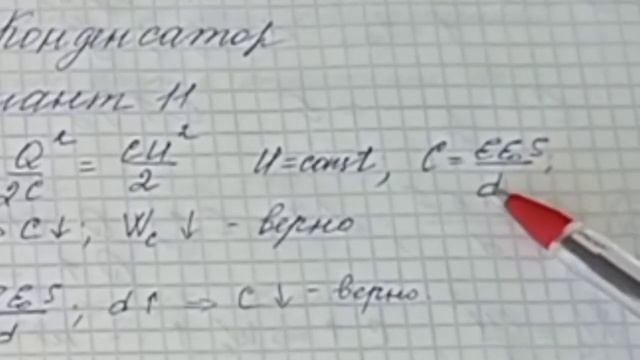 Конденсатор
иант 11
Q²/2C = CU²/2 U=const, C = εε₀S/d;
C↓; Wc ↓ - верно
εε₀S/d; d↑ ⇒ C↓ - верно.